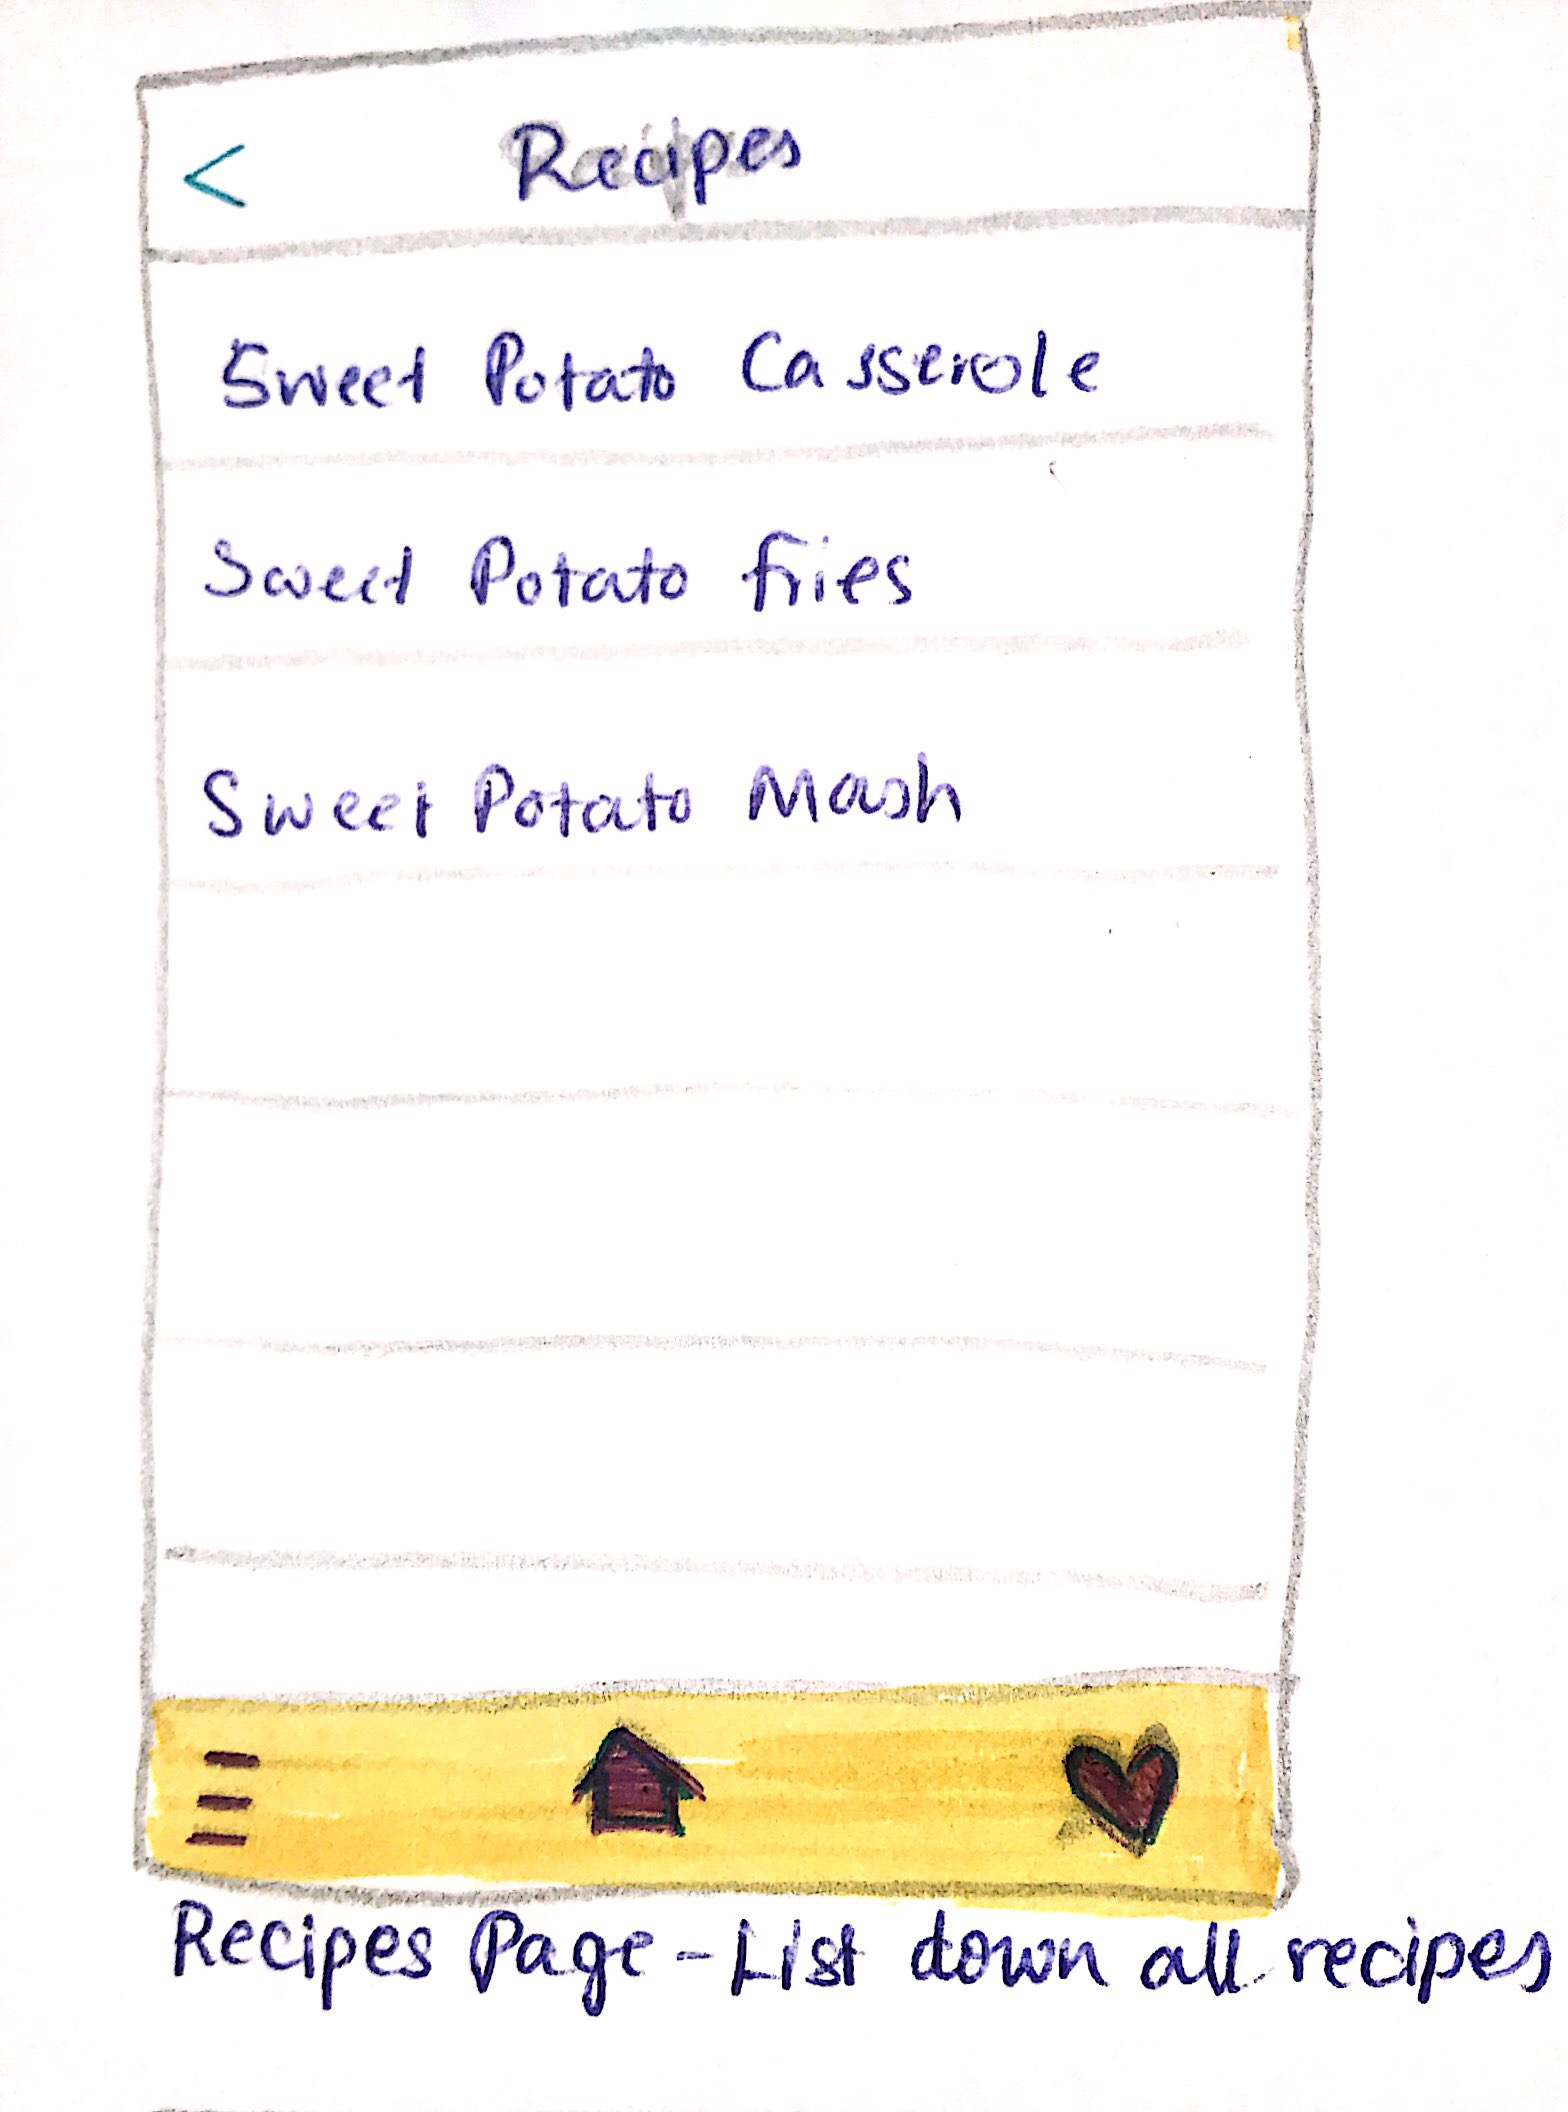 < Recipes
Sweet Potato Casserole
Sweet Potato fries
Sweet Potato Mash
Recipes Page - List down all recipes